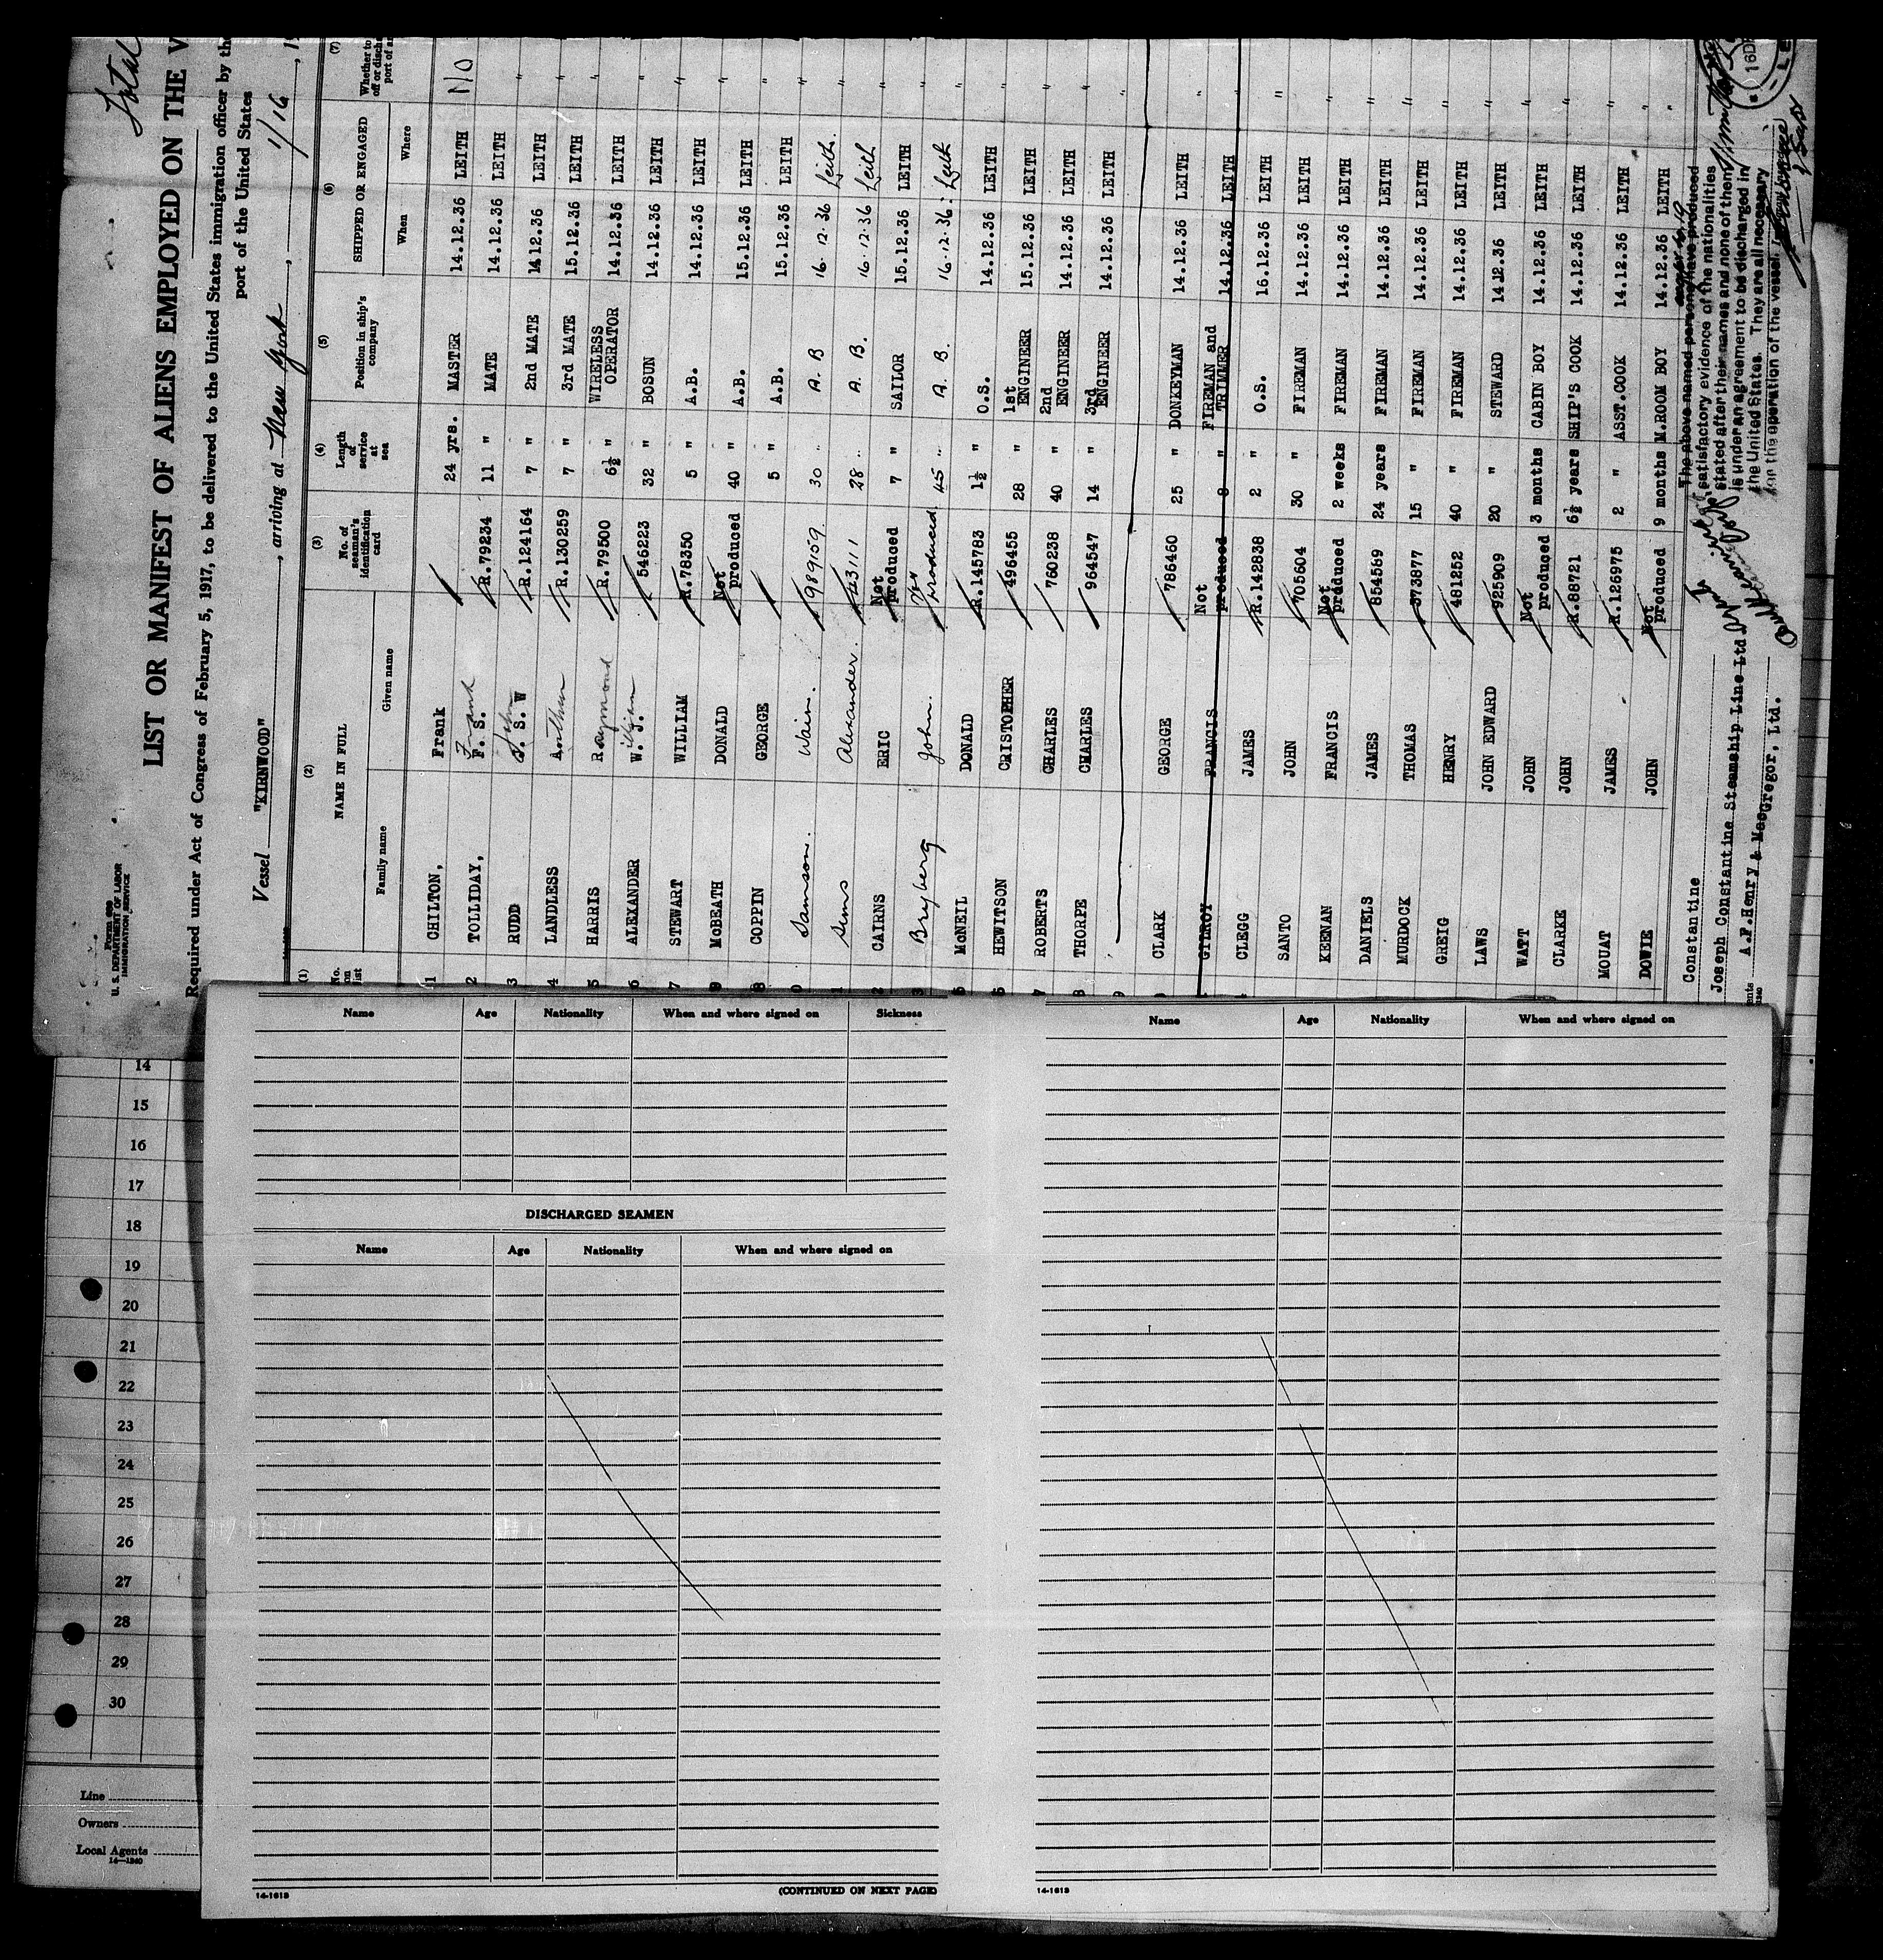 Total
Form 689
U. S. DEPARTMENT OF LABOR
IMMIGRATION SERVICE
LIST OR MANIFEST OF ALIENS EMPLOYED ON THE V
Required under Act of Congress of February 5, 1917, to be delivered to the United States immigration officer by the
port of the United States
Vessel "KIRNWOOD", arriving at New York, 1/16, 1
(1) (2) (3) (4) (5) (6) (7)
No. on list NAME IN FULL No. of seaman's identification card Length of service at sea Position in ship's company SHIPPED OR ENGAGED Whether to
off or disch
port of ar
Family name Given name When Where
1 CHILTON, Frank 24 yrs. MASTER 14.12.36 LEITH No
2 TOLLIDAY, Frank F. S. R.79234 11 " MATE 14.12.36 LEITH
3 RUDD John J. S. W R.124164 7 " 2nd MATE 14.12.36 LEITH "
4 LANDLESS Arthur R.130259 7 " 3rd MATE 15.12.36 LEITH "
5 HARRIS Raymond R.79500 6½ " WIRELESS OPERATOR 14.12.36 LEITH "
6 ALEXANDER William W. J. 546223 32 " BOSUN 14.12.36 LEITH
7 STEWART WILLIAM R.78350 5 " A.B. 14.12.36 LEITH "
9 McBEATH DONALD Not produced 40 " A.B. 15.12.36 LEITH "
8 COPPIN GEORGE 5 " A.B. 15.12.36 LEITH "
0 Samson. Wain. 989159 30 " A. B 16.12.36 Leith. "
1 Sims Alexander. 143111 28 " A. B. 16.12.36 Leith "
2 CAIRNS ERIC Not produced 7 " SAILOR 15.12.36 LEITH "
3 Bryberg John. Not produced. 45 " A. B. 16.12.36. Leith "
5 McNEIL DONALD R.145783 1½ " O.S. 14.12.36 LEITH "
6 HEWITSON CRISTOPHER 496455 28 " 1st ENGINEER 15.12.36 LEITH "
7 ROBERTS CHARLES 760238 40 " 2nd ENGINEER 14.12.36 LEITH "
8 THORPE CHARLES 964547 14 " 3rd ENGINEER 14.12.36 LEITH "
9
0 CLARK GEORGE 786460 25 " DONKEYMAN 14.12.36 LEITH "
GILROY FRANCIS Not produced 8 " FIREMAN and TRIMMER 14.12.36 LEITH "
CLEGG JAMES R.142838 2 " O.S. 16.12.36 LEITH "
SANTO JOHN 705604 30 " FIREMAN 14.12.36 LEITH "
KEENAN FRANCIS Not produced 2 weeks FIREMAN 14.12.36 LEITH "
DANIELS JAMES 854569 24 years FIREMAN 14.12.36 LEITH "
MURDOCK THOMAS 373877 15 " FIREMAN 14.12.36 LEITH "
GREIG HENRY 481252 40 " FIREMAN 14.12.36 LEITH "
LAWS JOHN EDWARD 925909 20 " STEWARD 14 12.36 LEITH "
WATT JOHN Not produced 3 months CABIN BOY 14.12.36 LEITH "
CLARKE JOHN R.88721 6½ years SHIP'S COOK 14.12.36 LEITH "
MOUAT JAMES R.126975 2 " ASST.COOK 14.12.36 LEITH "
DOWIE JOHN Not produced 9 months M.ROOM BOY 14.12.36 LEITH "
Constantine
Joseph Constantine Steamship Line Ltd
ents A.F.Henry & MacGregor, Ltd.
The above named persons have produced
satisfactory evidence of the nationalities
stated after their names and none of them
is under an agreement to be discharged in
the United States. They are all necessary
for the operation of the vessel.
16 DE
Name Age Nationality When and where signed on Sickness
DISCHARGED SEAMEN
Name Age Nationality When and where signed on
14-1613 (CONTINUED ON NEXT PAGE)
Name Age Nationality When and where signed on
14-1613
14
15
16
17
18
19
20
21
22
23
24
25
26
27
28
29
30
Line
Owners
Local Agents
14—1240